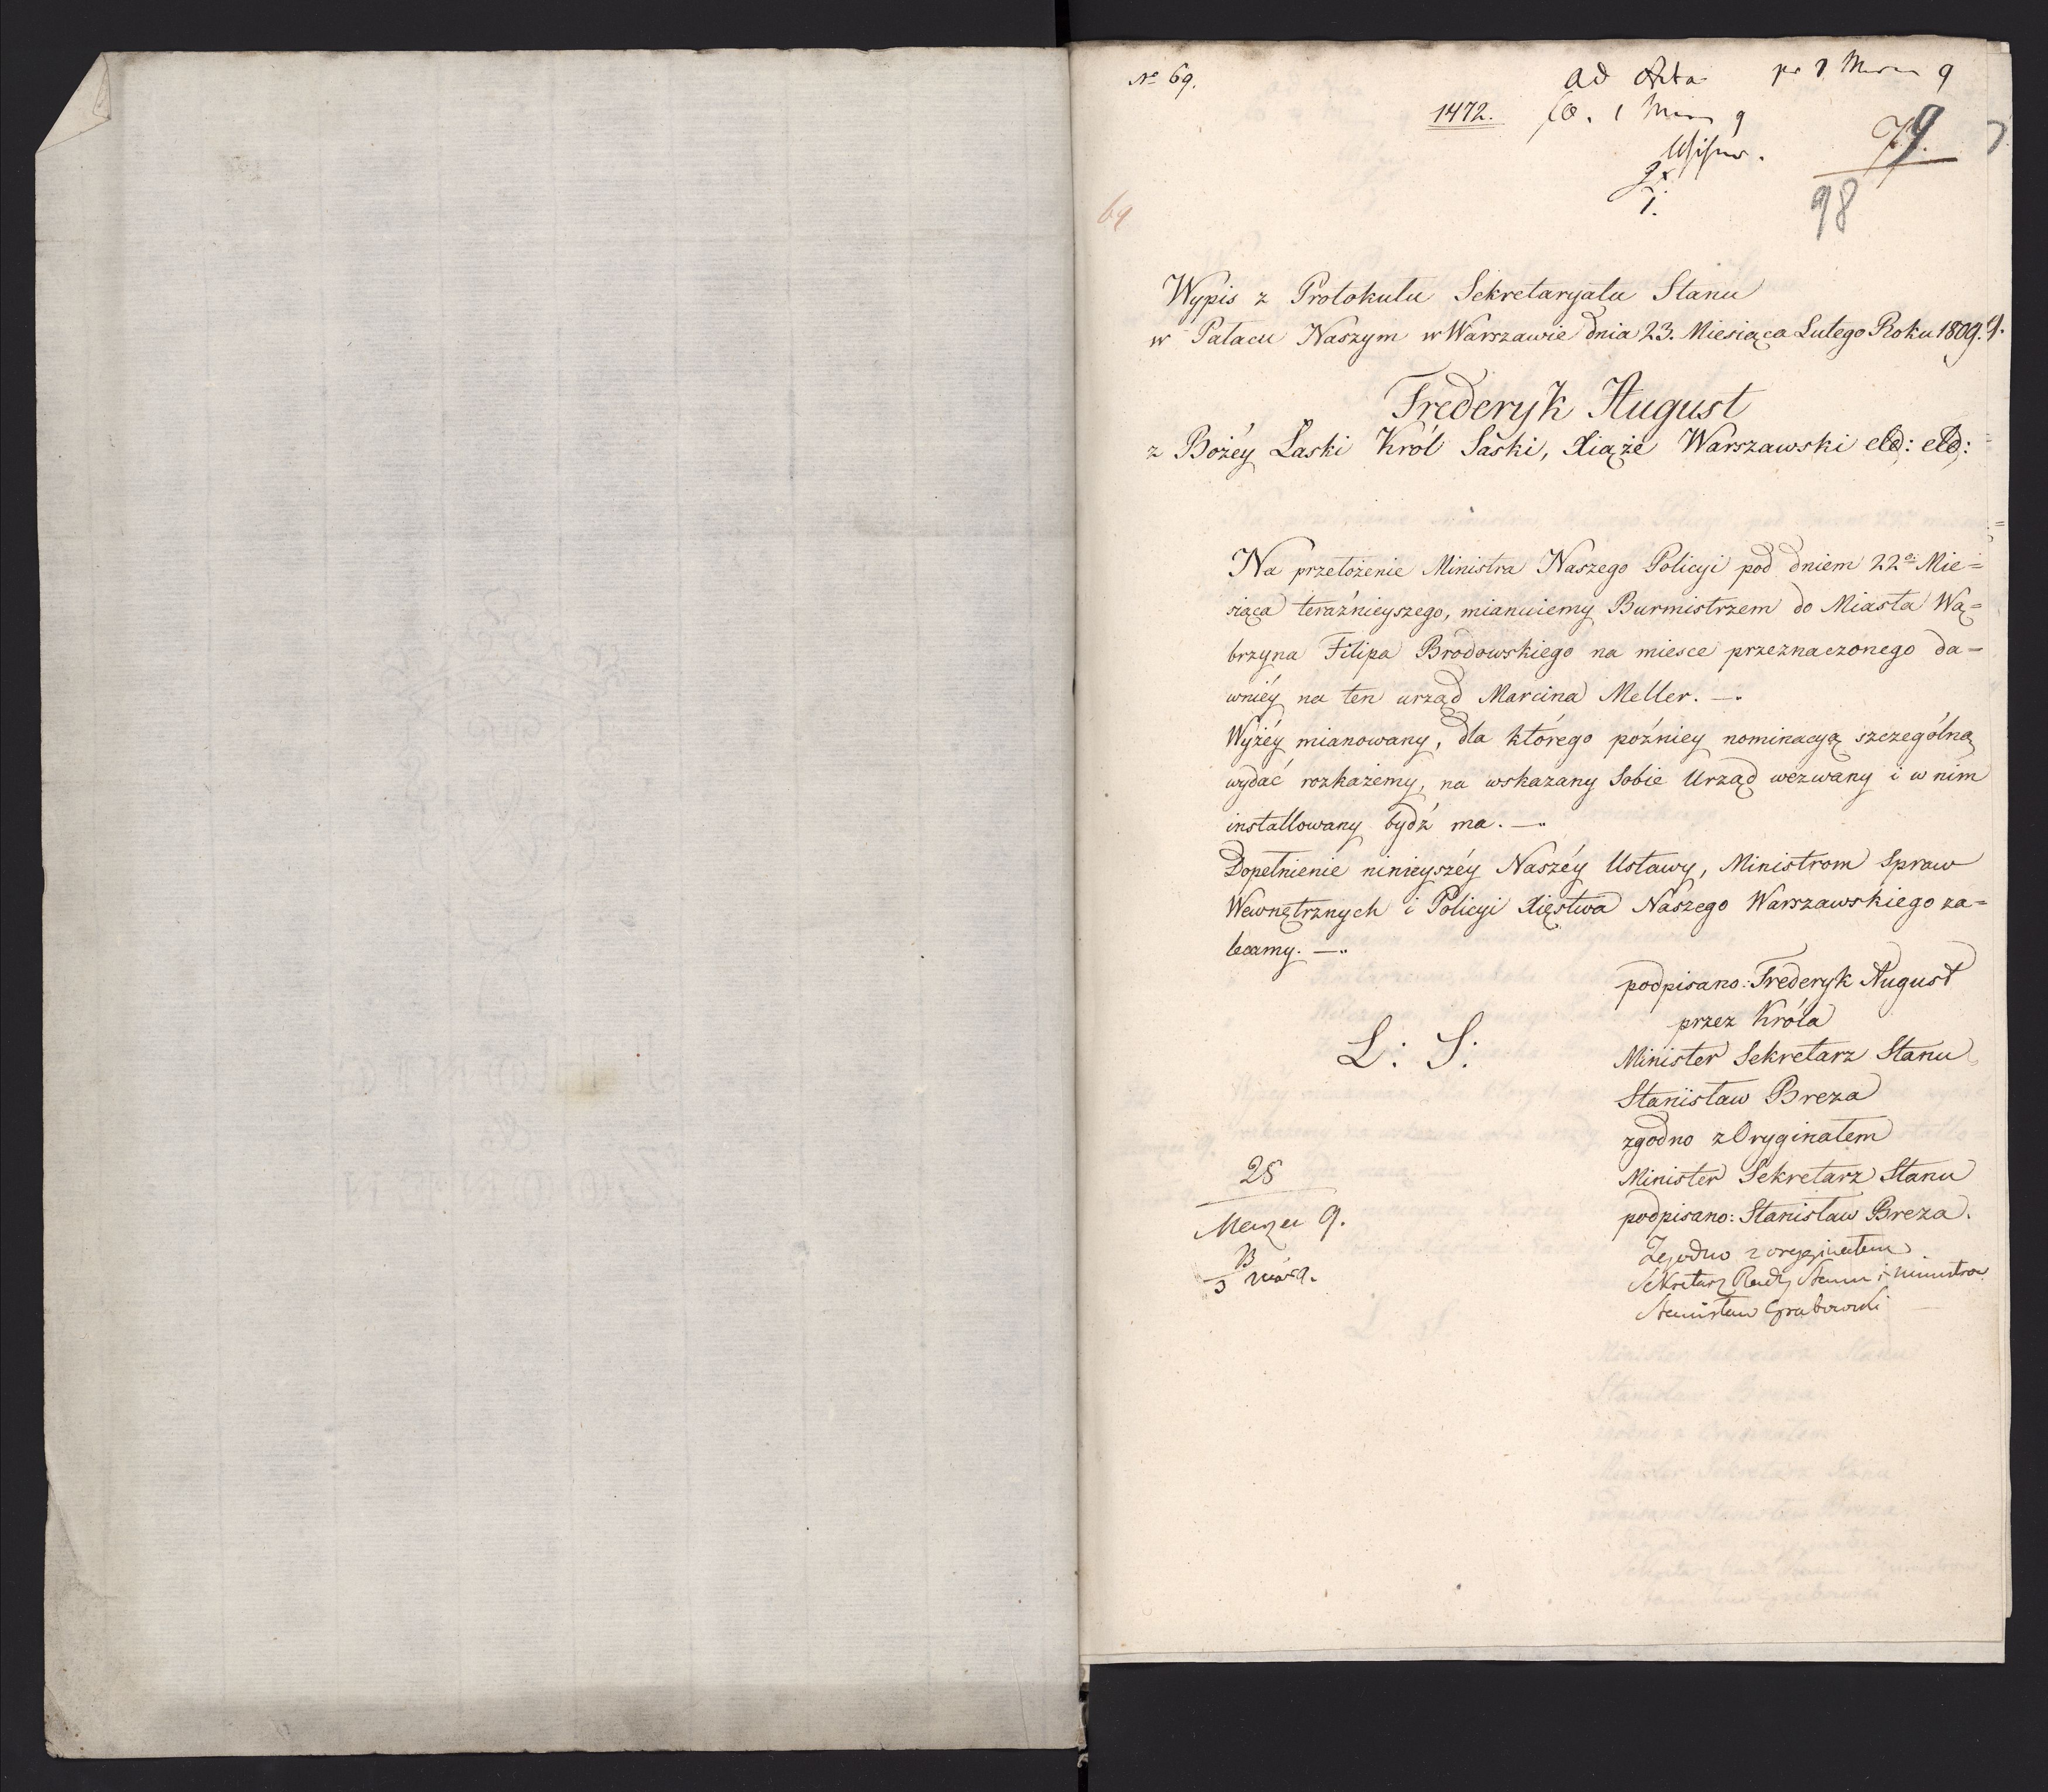 No 69.
ad Acta
1472.
79.
98
69
Wypis z Protokułu Sekretaryatu Stanu
w Pałacu Naszym w Warszawie dnia 23. Miesiąca Lutego Roku 1809. 9.
Frederyk August
z Bożéy Łaski Król Saski, Xiąże Warszawski etc: etc:
Na przełożenie Ministra Naszego Policyi pod dniem 22o Mie=
siąca teraźnieyszego, mianuiemy Burmistrzem do Miasta Wą=
brzyna Filipa Brodowskiego na miesce przeznaczonego da=
wniéy na ten urząd Marcina Meller. —.
Wyżéy mianowany, dla którego poźniey nominacyą szczególną
wydać rozkażemy, na wskazany Sobie Urząd wezwany i w nim
installowany bydź ma. —.
Dopełnienie ninieyszéy Naszéy Ustawy, Ministrom Spraw
Wewnętrznych i Policyi Xięstwa Naszego Warszawskiego za=
lecamy. —.
podpisano: Frederyk August
przez Króla
L: S:
Minister Sekretarz Stanu
Stanisław Breza
zgodno z Oryginałem
Minister Sekretarz Stanu
podpisano: Stanisław Breza.
Zgodno z oryginałem
Sekretarz Rady Stanu i Ministrow
Stanisław Grabowski
28
Marca 9.